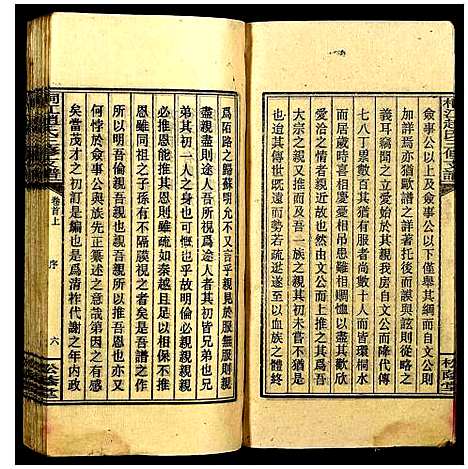 桐江趙氏三修支譜
僉事公以上及僉事公以下僅舉其綱而文公則
加詳焉亦猶歐譜之詳者托面談與誌銘從略之
耳竊聞之文公而於其親我房自文公而降代傳
七八丁累數百其猶有服者尚數十人而皆環桐水
愛洽之情者親近者時相喜慶憂相弔患難相賙恤以盡其歡欣
大宗之親大而及吾一族之親其初未嘗不猶大
世而其親也然由文公而上推之其不猶大
一世而親也勢若疏逖遂至以吾祖之體終
爲陌路之歸蘇明允不又云乎親見於服服則親
盡親盡則途人途人吾所視爲途人者其初皆兄弟也兄
弟其初一人之身也可慨也乎故明倫必親親親
必推恩能推其恩則雖疏如秦越且猶不忍忘
恩雖同祖之子孫有不隔膜視之者矣是吾譜之作
所以明吾倫親吾親推吾恩也
何幸於僉事公與族先正纂述之意哉第因之有感
矣當茂才之初訂是編也是爲清祚代謝之年内政
桐江趙氏三修支譜
卷首上
序
六
松蔭堂